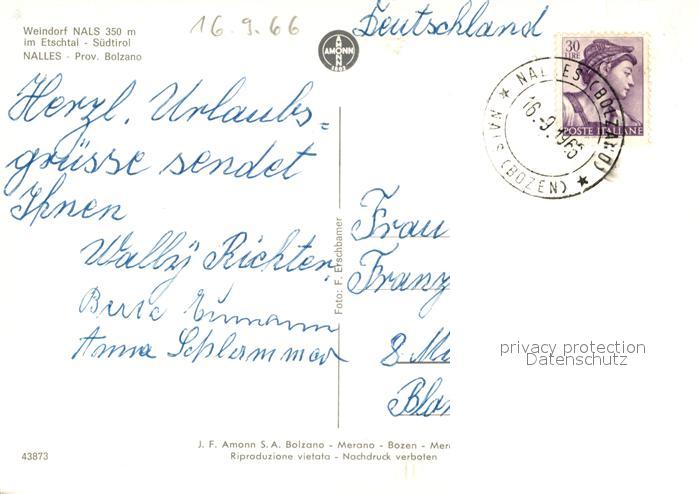 Weindorf NALS 350 m
im Etschtal - Südtirol
NALLES - Prov. Bolzano
16.9.66
AMONN
1802
Deutschland
30
LIRE
POSTE ITALIANE
NALLES (BOLZANO)
16.-9.1966
NALS (BOZEN)
Herzl. Urlaubs=
grüsse sendet
Ihnen
Wally Richter
Anna Schlemmer
Foto: F. Erschbamer
Frau
Franz
8 Mü
Blu
privacy protection
Datenschutz
J. F. Amonn S.A. Bolzano - Merano - Bozen - Mer
43873
Riproduzione vietata - Nachdruck verboten